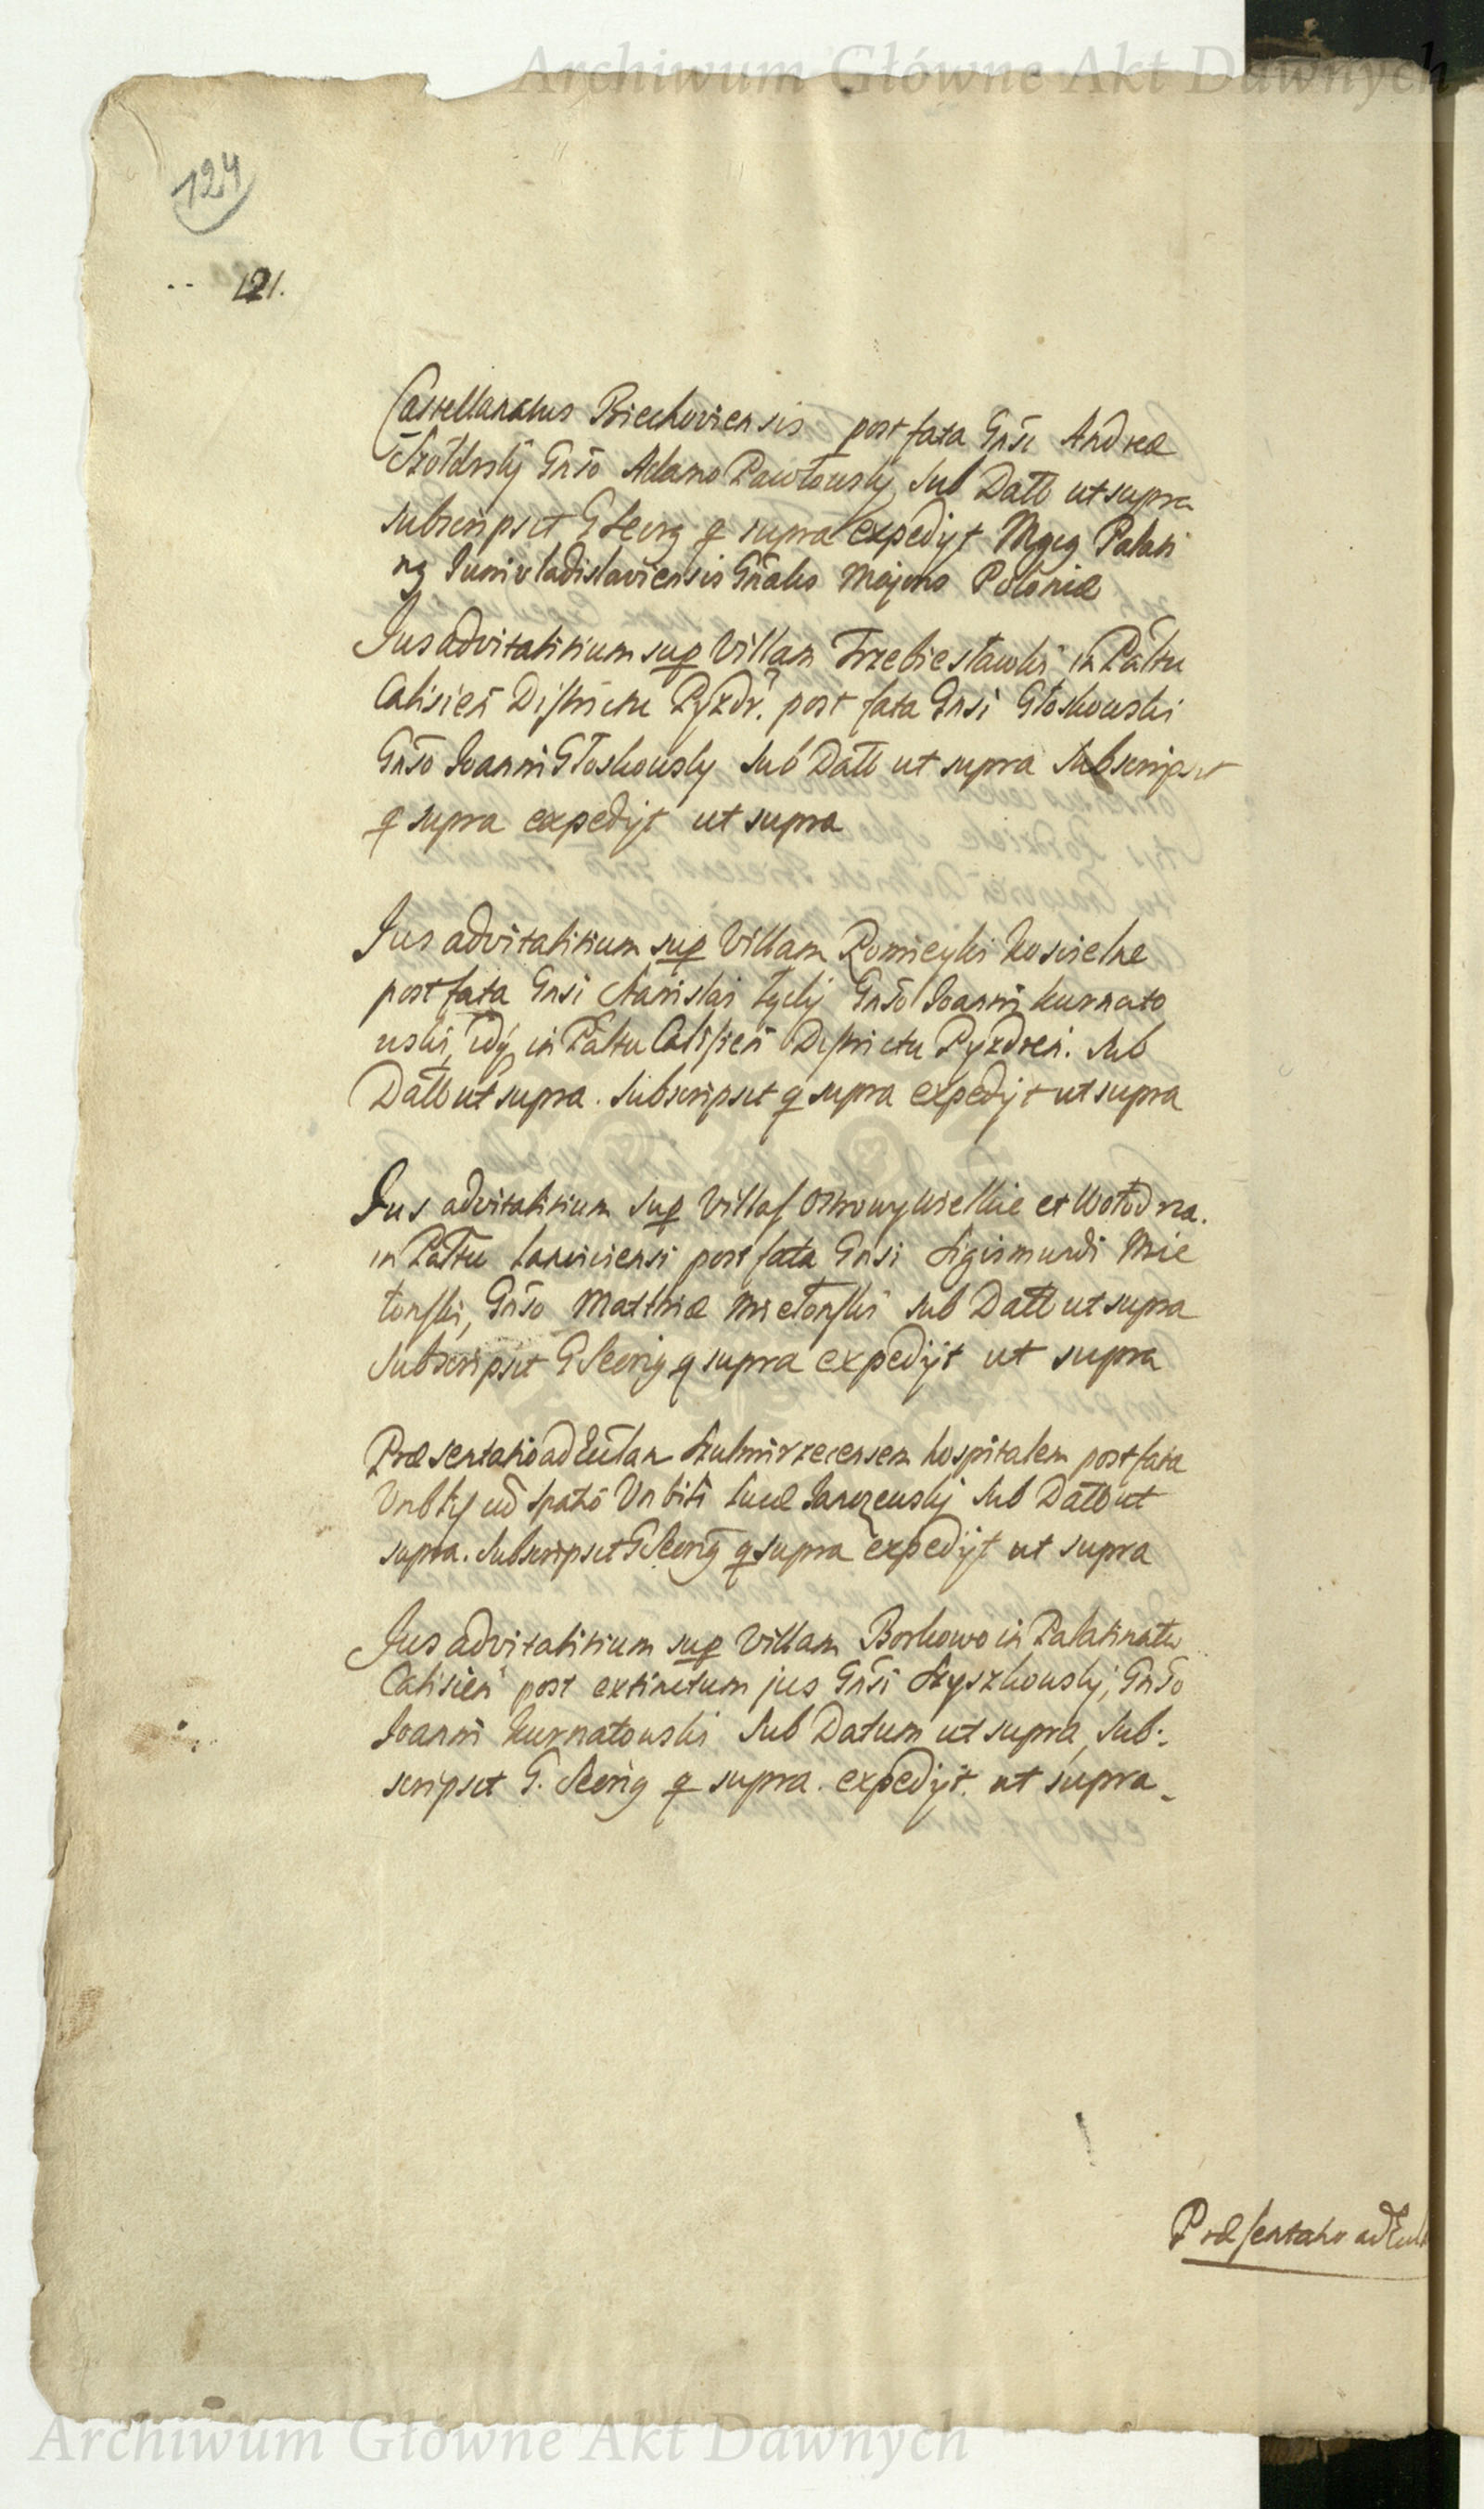 Archiwum Główne Akt Dawnych
124
121.
Castellanatus Biechoviensis post fata Gnsi Andreæ
Szołdrskÿ Gnso Adamo Pawłowskÿ, sub Datt ut supra
subscripsit G Secrg q supra expedijt Mgcg Palati
ng Juniwladislaviensis Gnalis Majoris Poloniæ
Jus advitalitium sup Villam Trzebiesławki in Pałtu
Calisień Districtu Pyzdr. post fata Gnsi Głoskowski
Gnso Joanni Głoskowsky sub Datt ut supra subscripsit
q supra expedijt ut supra
Jus advitalitium sup Villam Romieyki Koscielne
post fata Gnsi Stanislai Łąckj Gnso Joanni Kurnato
uski, in Pałtu Calisień Districtu Pyzdreń. sub
Datt ut supra. subscripsit q supra expedijt ut supra
Jus advitalitium sup Villas Ostrowy Wielkie et Wołodrza.
in Pałtu Lanciciensi post fata Gnsi Sigismundi Mie
tonski, Gnso Matthiæ Mietonski sub Datt ut supra
Subscripsit G Secrig q supra expedijt ut supra
Præsentatio ad Ecclan Szulmirzecensem hospitalem post fata
Spató Vnbiti Lucæ Janczeuskj sub Datt ut
supra. Subscripsit G Secrig q supra expedijt ut supra
Jus advitalitium sup Villam Borkowo in Palatinatu
Calisień post extinctum jus Gnsi Szyszkouskj, Gnso
Joanni Kurnatouski sub Datum ut supra, sub:
scripsit G. Secrig q supra. expedijt. ut supra
Præsentatio ad Eccl
Archiwum Główne Akt Dawnych